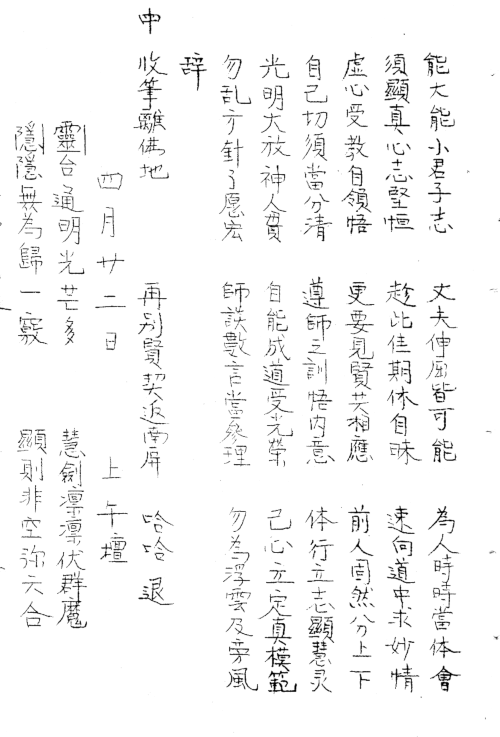 能大能小君子志 丈夫伸屈皆可能 為人時時當体會
須顯真心志堅恒 趁此佳期休自昧 速向道中求妙情
虛心受教自領悟 更要見賢共相應 前人固然分上下
自己切須當分清 遵師之訓悟內意 体行立志顯慧灵
光明大放神人賛 自能成道受光榮 己心立定真模範
勿乱方針了愿宏 師談數言當參理 勿為浮雲及旁風
辞
中 收筆離佛地 再別賢契返南屏 哈哈 退
四月廿二日 上午壇
靈台通明光芒多 慧劍凛凛伏群魔
隱隱無為歸一竅 顯則非空弥六合